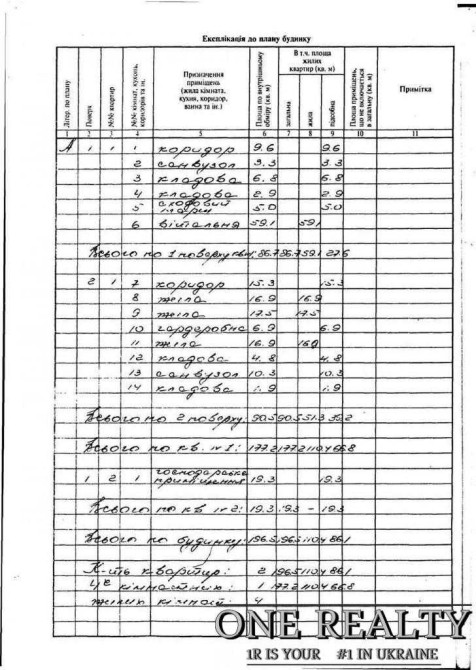 Експлікація до плану будинку
Літер. по плану | Поверх | №№ квартир | №№ кімнат, кухонь, коридорів та ін. | Призначення приміщень (жила кімната, кухня, коридор, ванна та ін.) | Площа по внутрішньому обміру (кв. м) | В т.ч. площа жилих квартир (кв. м) | загальна | жила | підсобна | Площа приміщень, що не включається в загальну (кв. м) | Примітка
1 2 3 4 5 6 7 8 9 10 11
А 1 1 1 коридор 9.6 9.6
2 санвузол 3.3 3.3
3 кладова 6.8 6.8
4 кладова 2.9 2.9
5 сходовий марш 5.0 5.0
6 вітальня 59.1 59.1
Всього по 1 поверху кв1: 86.7 86.7 59.1 27.6
2 1 7 коридор 15.3 15.3
8 жила 16.9 16.9
9 жила 17.5 17.5
10 гардеробна 6.9 6.9
11 жила 16.9
12 кладова 4.8 4.8
13 санвузол 10.3 10.3
14 кладова 1.9 1.9
Всього по 2 поверху: 90.5 90.5 51.3 39.2
Всього по кв. №1: 177.2 177.2 110.4 66.8
1 2 1 господарське приміщення 19.3 19.3
Всього по кв №2: 19.3 19.3 - 19.3
Всього по будинку: 196.5 196.5 110.4 86.1
К-ть квартир: 2 196.5 110.4 86.1
1 177.2 110.4 66.8
жилих кімнат: 4
ONE REALTY
1R IS YOUR #1 IN UKRAINE